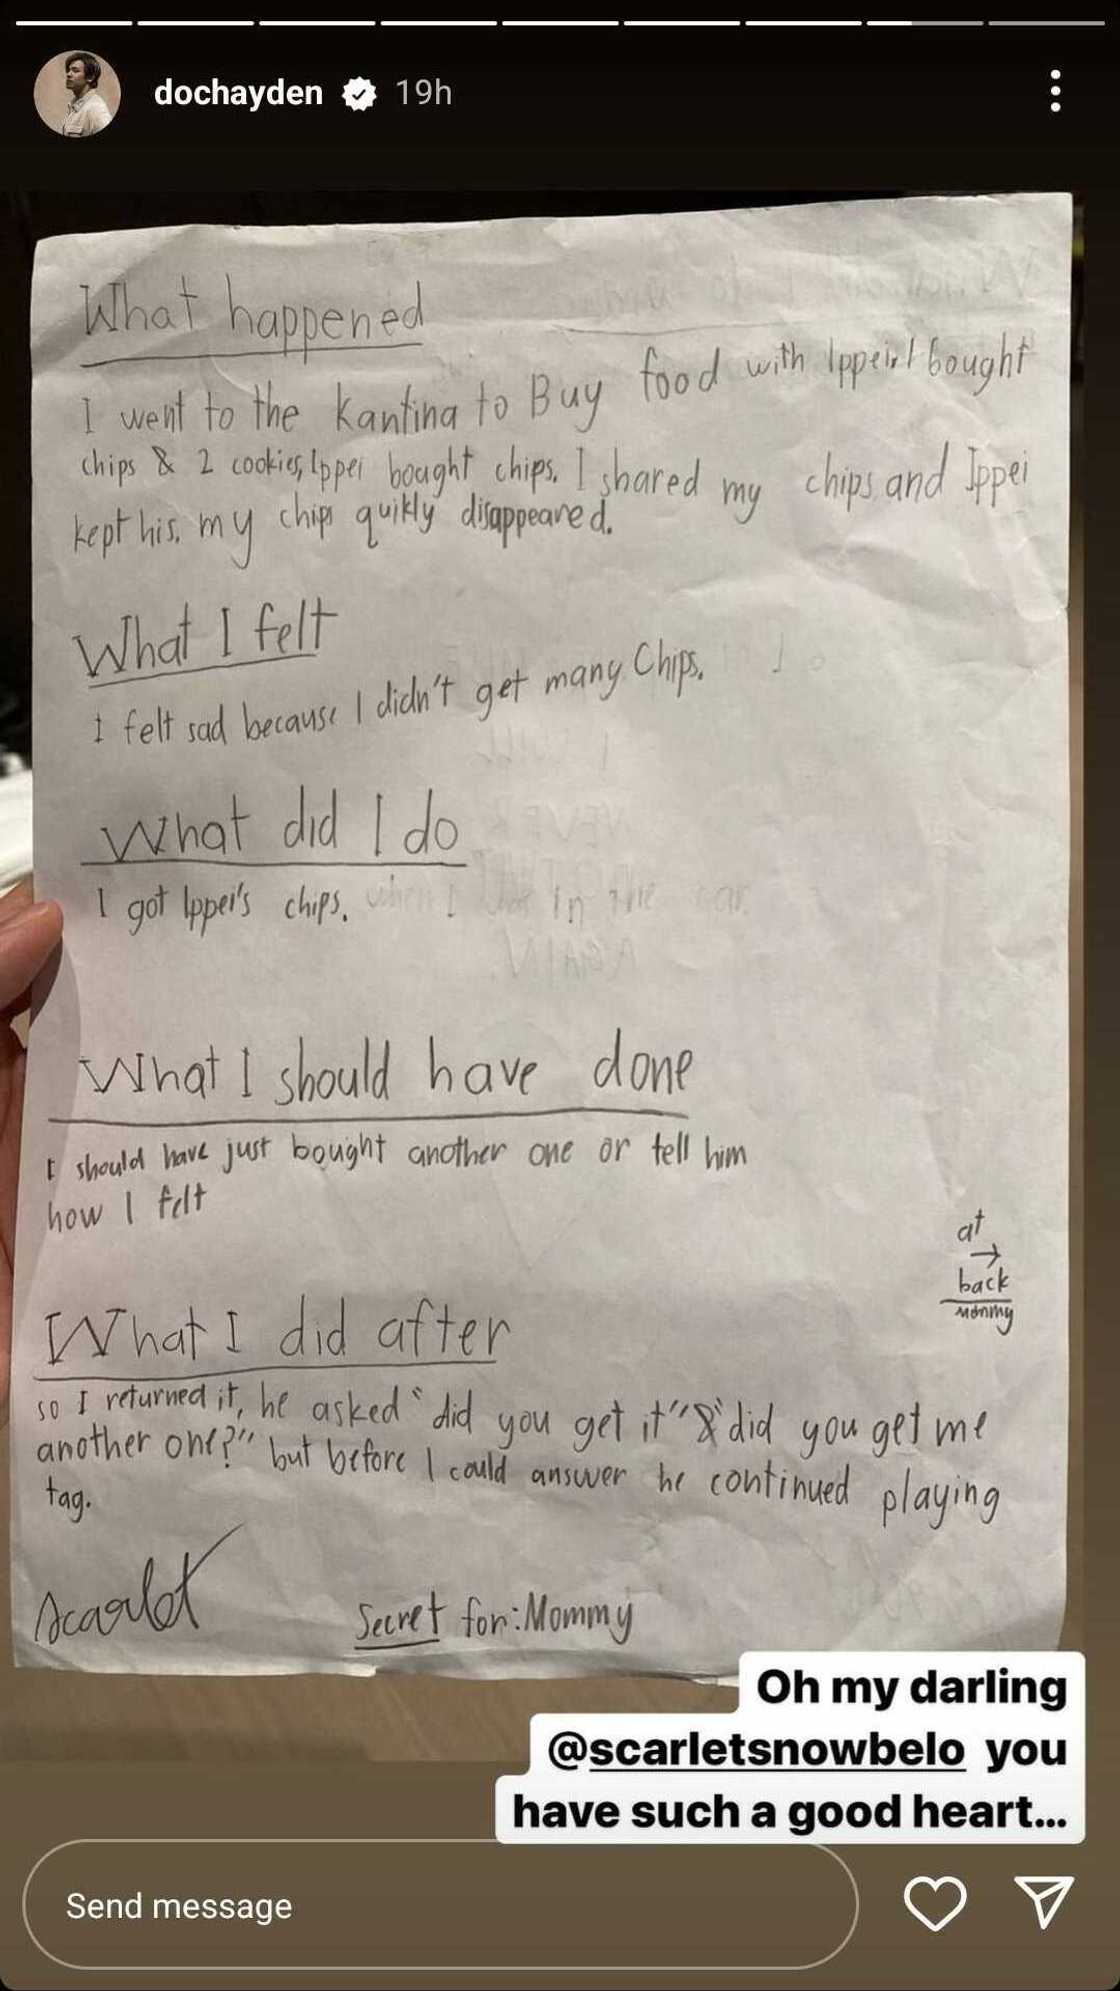 dochayden 19h
What happened
I went to the kantina to Buy food with Ippei, I bought
chips & 2 cookies, Ippei bought chips. I shared my chips and Ippei
kept his. my chips quikly disappeared.
What I felt
I felt sad because I didn't get many Chips.
What did I do
I got Ippei's chips. when I was in the car.
What I should have done
I should have just bought another one or tell him
how I felt
at
→
back
Mommy
What I did after
so I returned it, he asked "did you get it" & "did you get me
another one?" but before I could answer he continued playing
tag.
Scarlet
Secret for: Mommy
Oh my darling
@scarletsnowbelo you
have such a good heart...
Send message